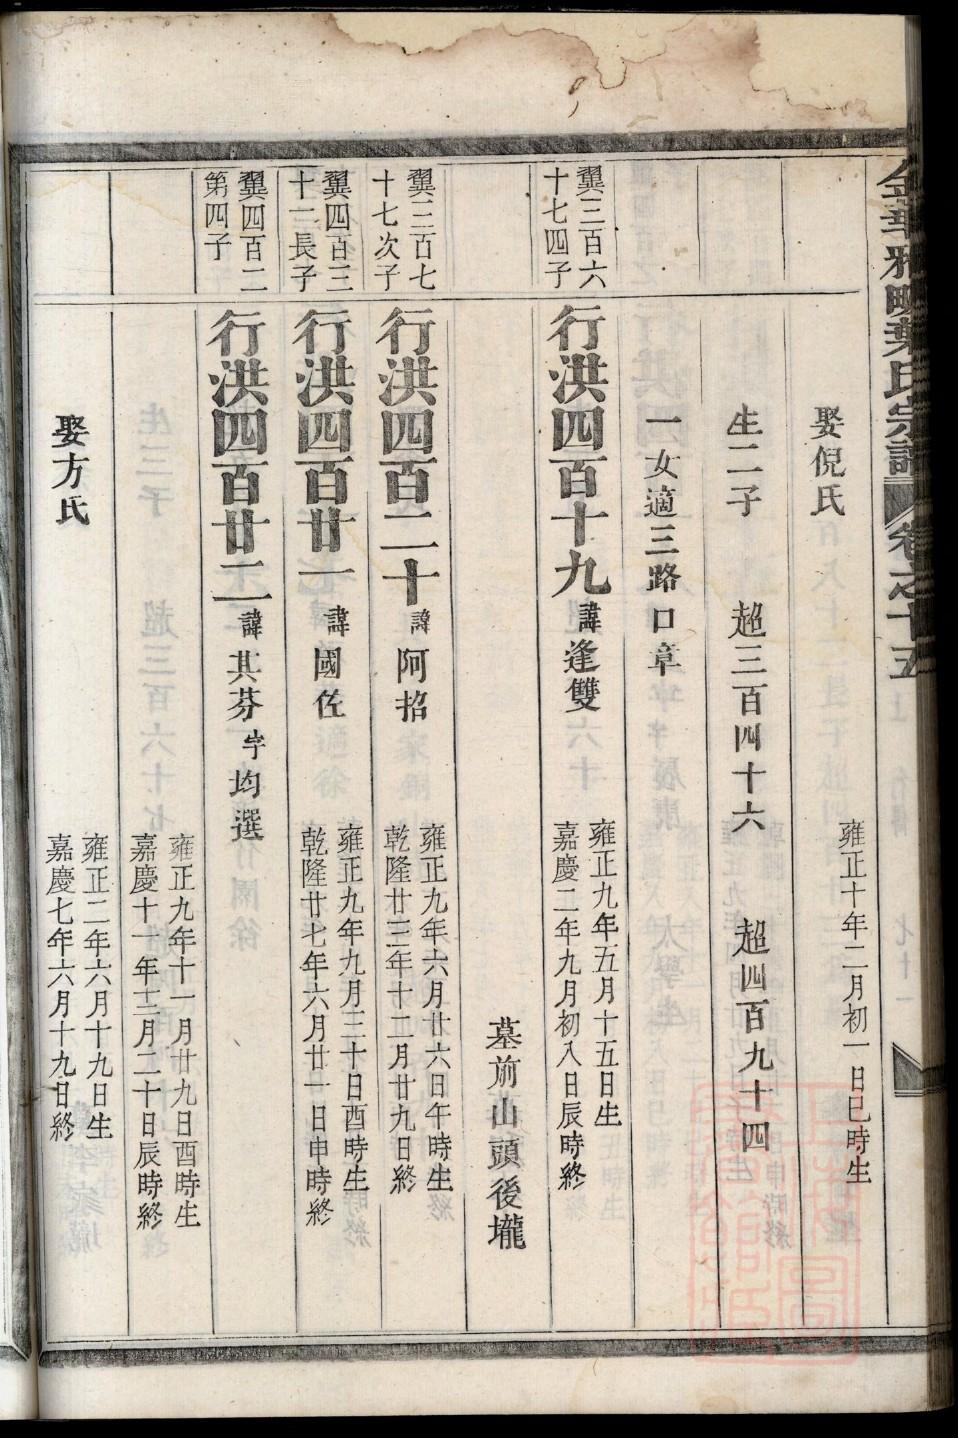 金華雅畈葉氏宗譜 卷之十五
娶倪氏 雍正十年二月初一日巳時生
生二子 超三百四十六 超四百九十四
一女適三路口章
翼三百六十七四子
行洪四百十九 諱逢雙 雍正九年五月十五日生 嘉慶二年九月初八日辰時終
墓前山頭後壠
翼三百七十七次子
行洪四百二十 諱阿招 雍正九年六月廿六日午時生 乾隆廿三年十二月廿九日終
翼四百三十二長子
行洪四百廿一 諱國佐 雍正九年九月三十日酉時生 乾隆廿七年六月廿一日申時終
翼四百二第四子
行洪四百廿二 諱其芬 字均選 雍正九年十一月廿九日酉時生 嘉慶十一年三月二十日辰時終
娶方氏 雍正二年六月十九日生 嘉慶七年六月十九日終